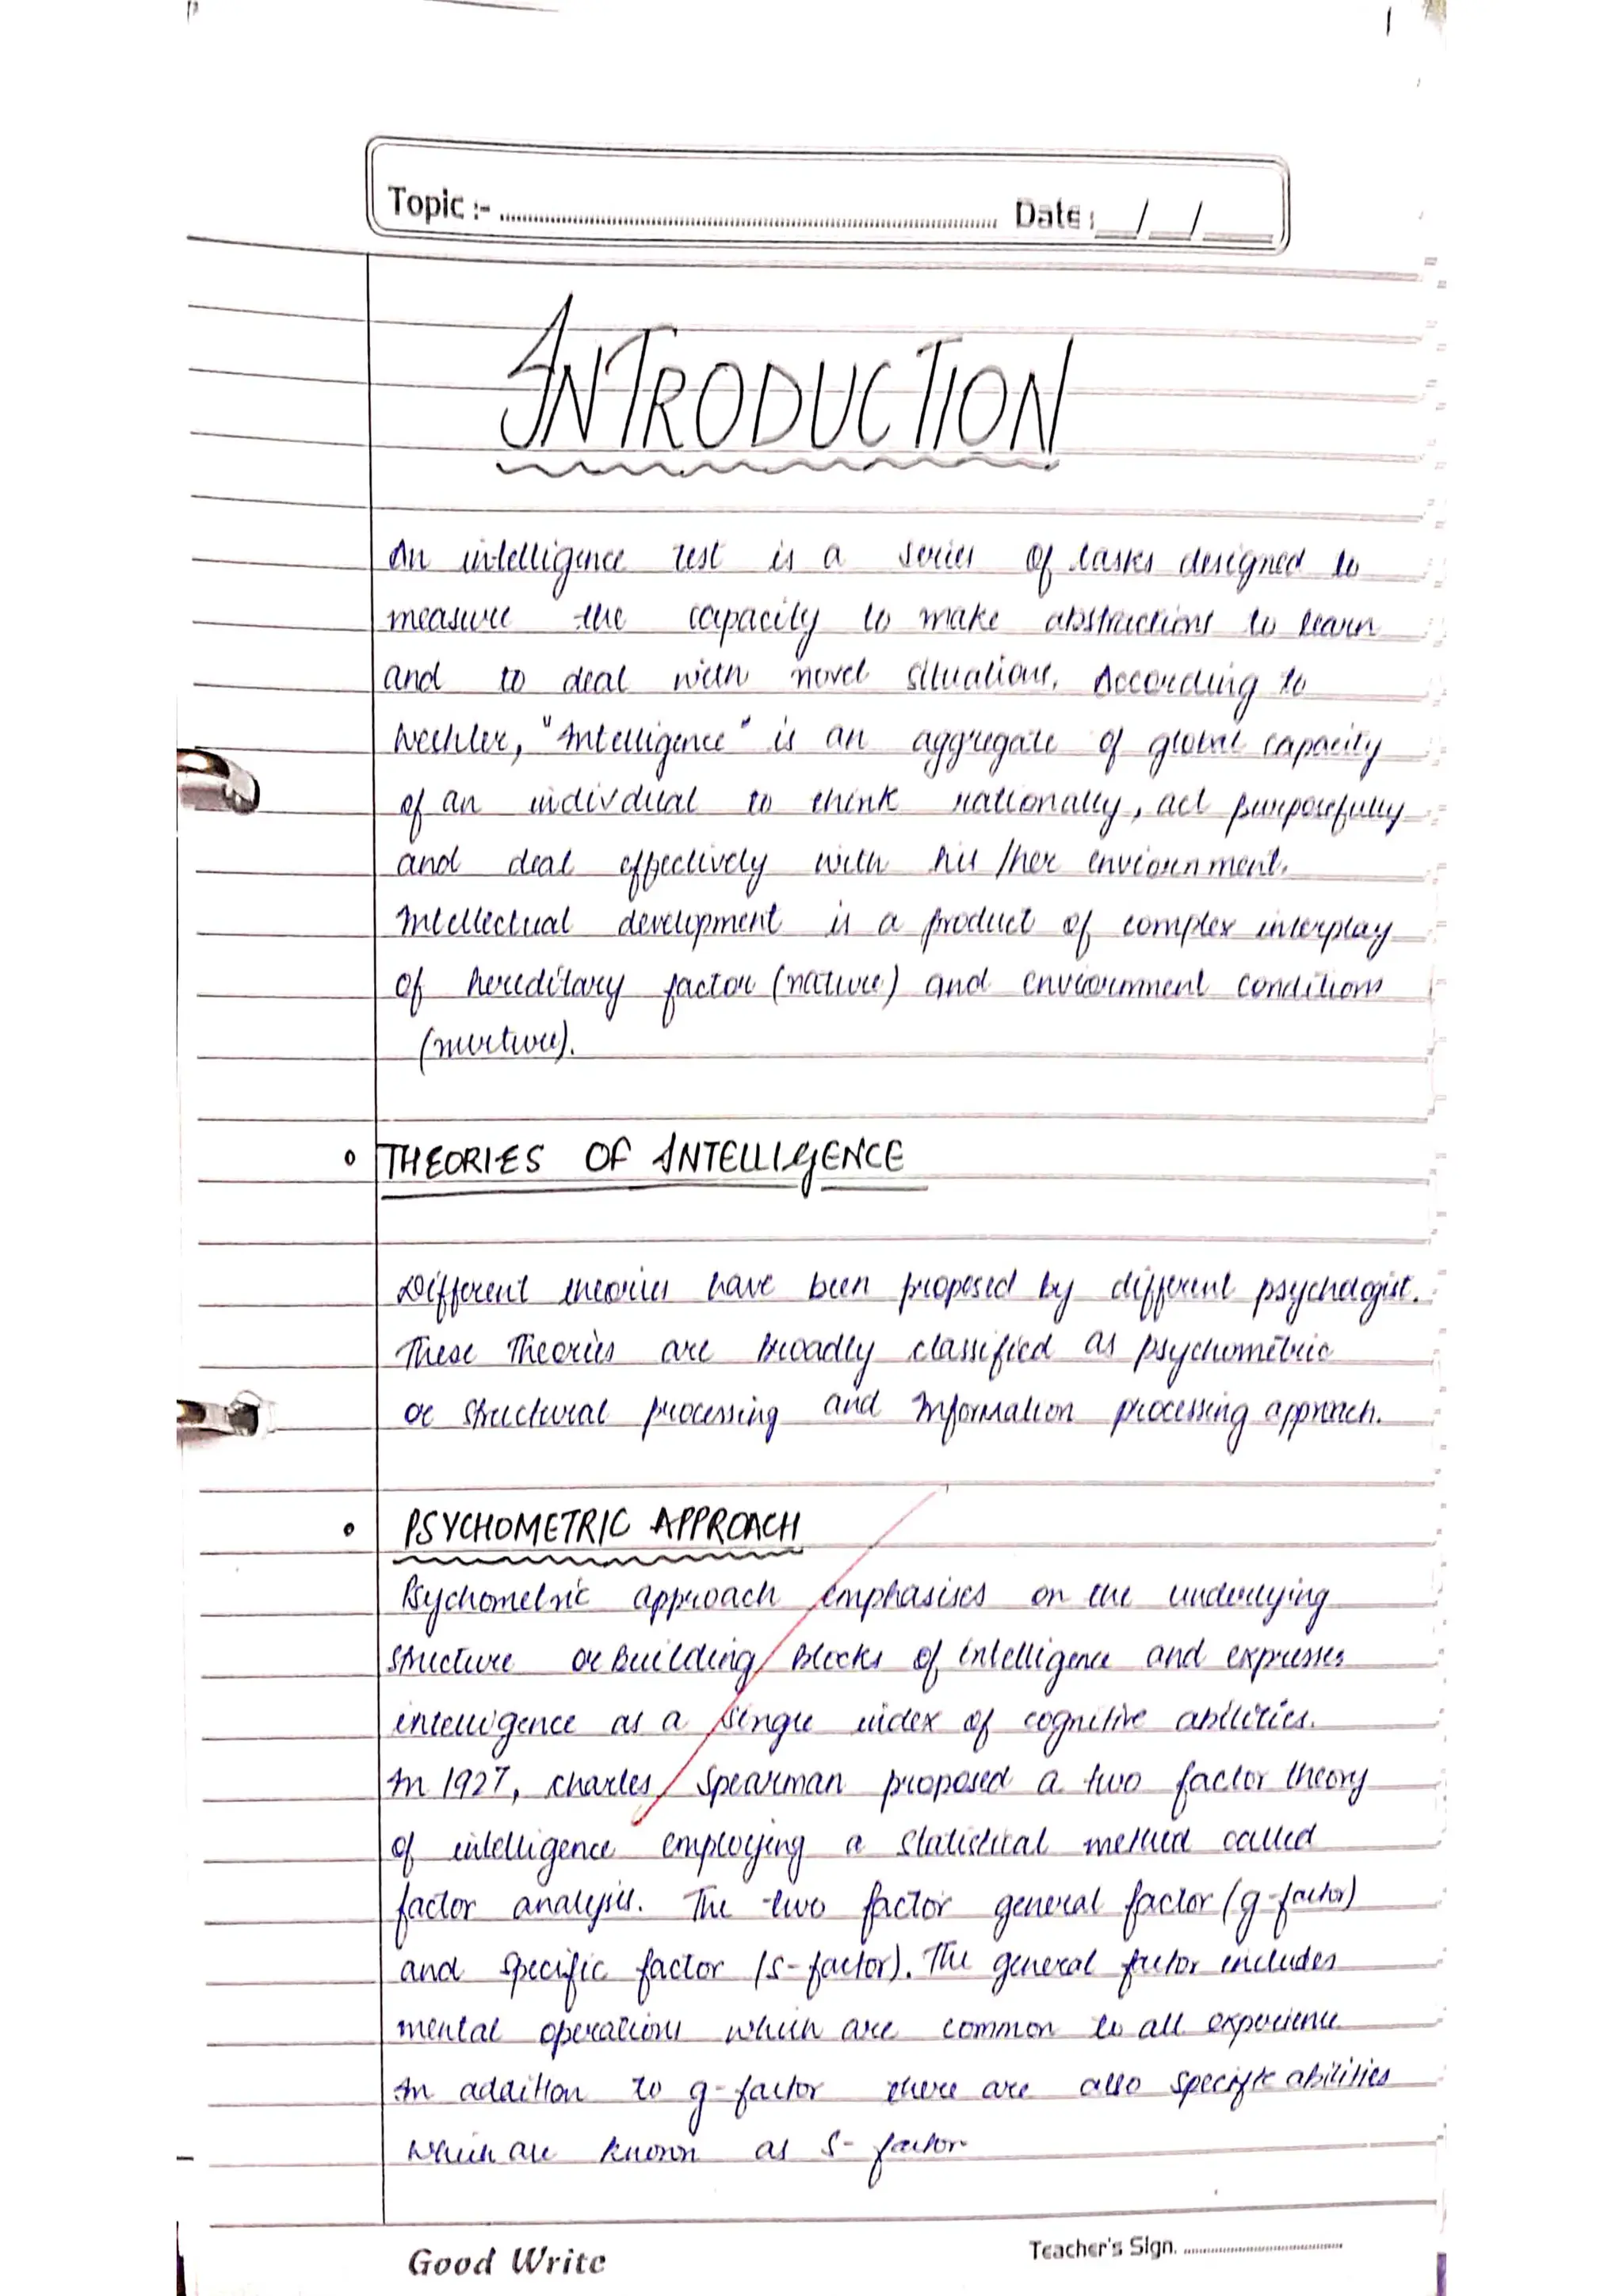 1
Topic :- ........................ Date: __/__/____
INTRODUCTION
An intelligence test is a series of tasks designed to
measure the capacity to make abstractions to learn
and to deal with novel situations. According to
Weshler, "Intelligence" is an aggregate of global capacity
of an indivdual to think rationally, act purposefully
and deal effectively with his /her enviornment.
Intellectual development is a product of complex interplay
of hereditary factor (nature) and enviornment conditions
(nurture).
• THEORIES OF INTELLIGENCE
Different theories have been proposed by different psychologist.
These Theories are broadly classified as psychometric
or structural processing and Information processing approach.
• PSYCHOMETRIC APPROACH
Psychometric approach emphasises on the underlying
structure or Building Blocks of intelligence and expresses
intelligence as a single index of cognitive abilities.
In 1927, charles Spearman proposed a two factor theory
of intelligence employing a statistical method called
factor analysis. The two factor general factor (g-factor)
and specific factor (s-factor). The general factor includes
mental operations which are common to all experience
In addition to g-factor there are also specific abilities
which are known as S- factor
Good Write
Teacher's Sign. ........................